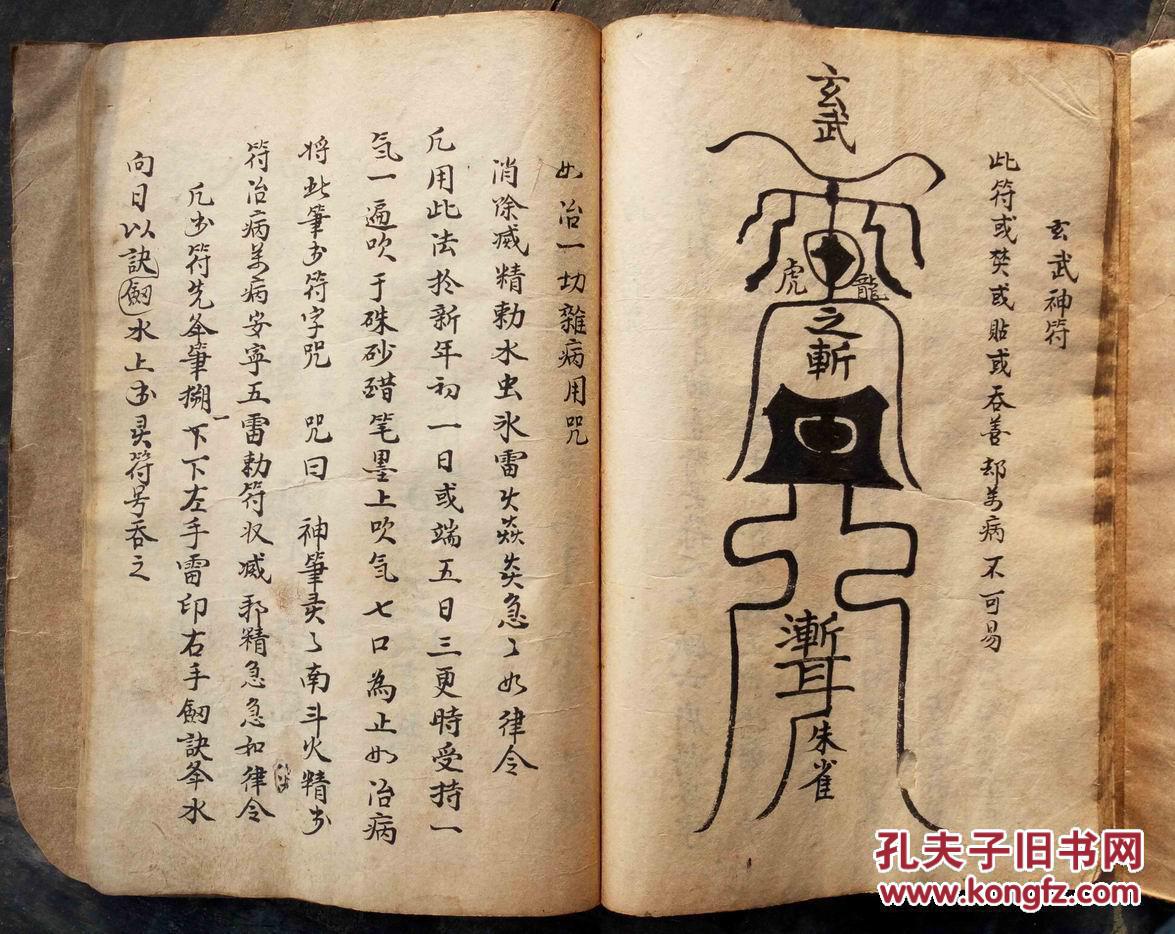 玄武神符
此符或焚或貼或吞善却万病不可易
玄武
虎
龍
之斬
漸耳
朱雀
如治一切雜病用咒
消除滅精勅水虫氷雷火焱炎急〻如律令
凡用此法於新年初一日或端五日三更時受持一
気一遍吹于硃砂醋笔墨上吹気七口為止如治病
将此筆书符字咒 咒曰 神筆灵〻南斗火精书
符治病万病安寧五雷勅符収滅邪精急急如律令
凡书符先夆筆搠下下左手雷印右手劔訣夆水
向日以訣劔水上书灵符号吞之
孔夫子旧书网
www.kongfz.com